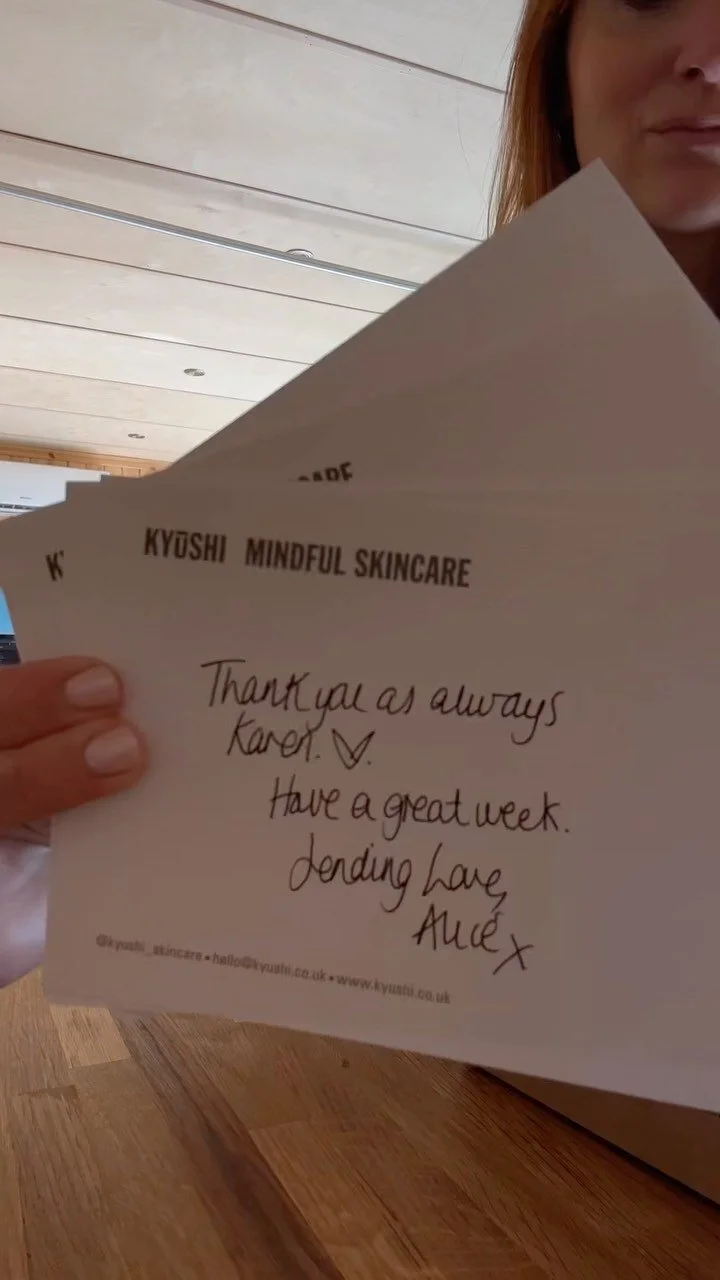 CARE
K
KYŪSHI MINDFUL SKINCARE
Thank you as always
Karen. ♡.
Have a great week.
Sending Love,
Alice x
@kyushi_skincare • hello@kyushi.co.uk • www.kyushi.co.uk